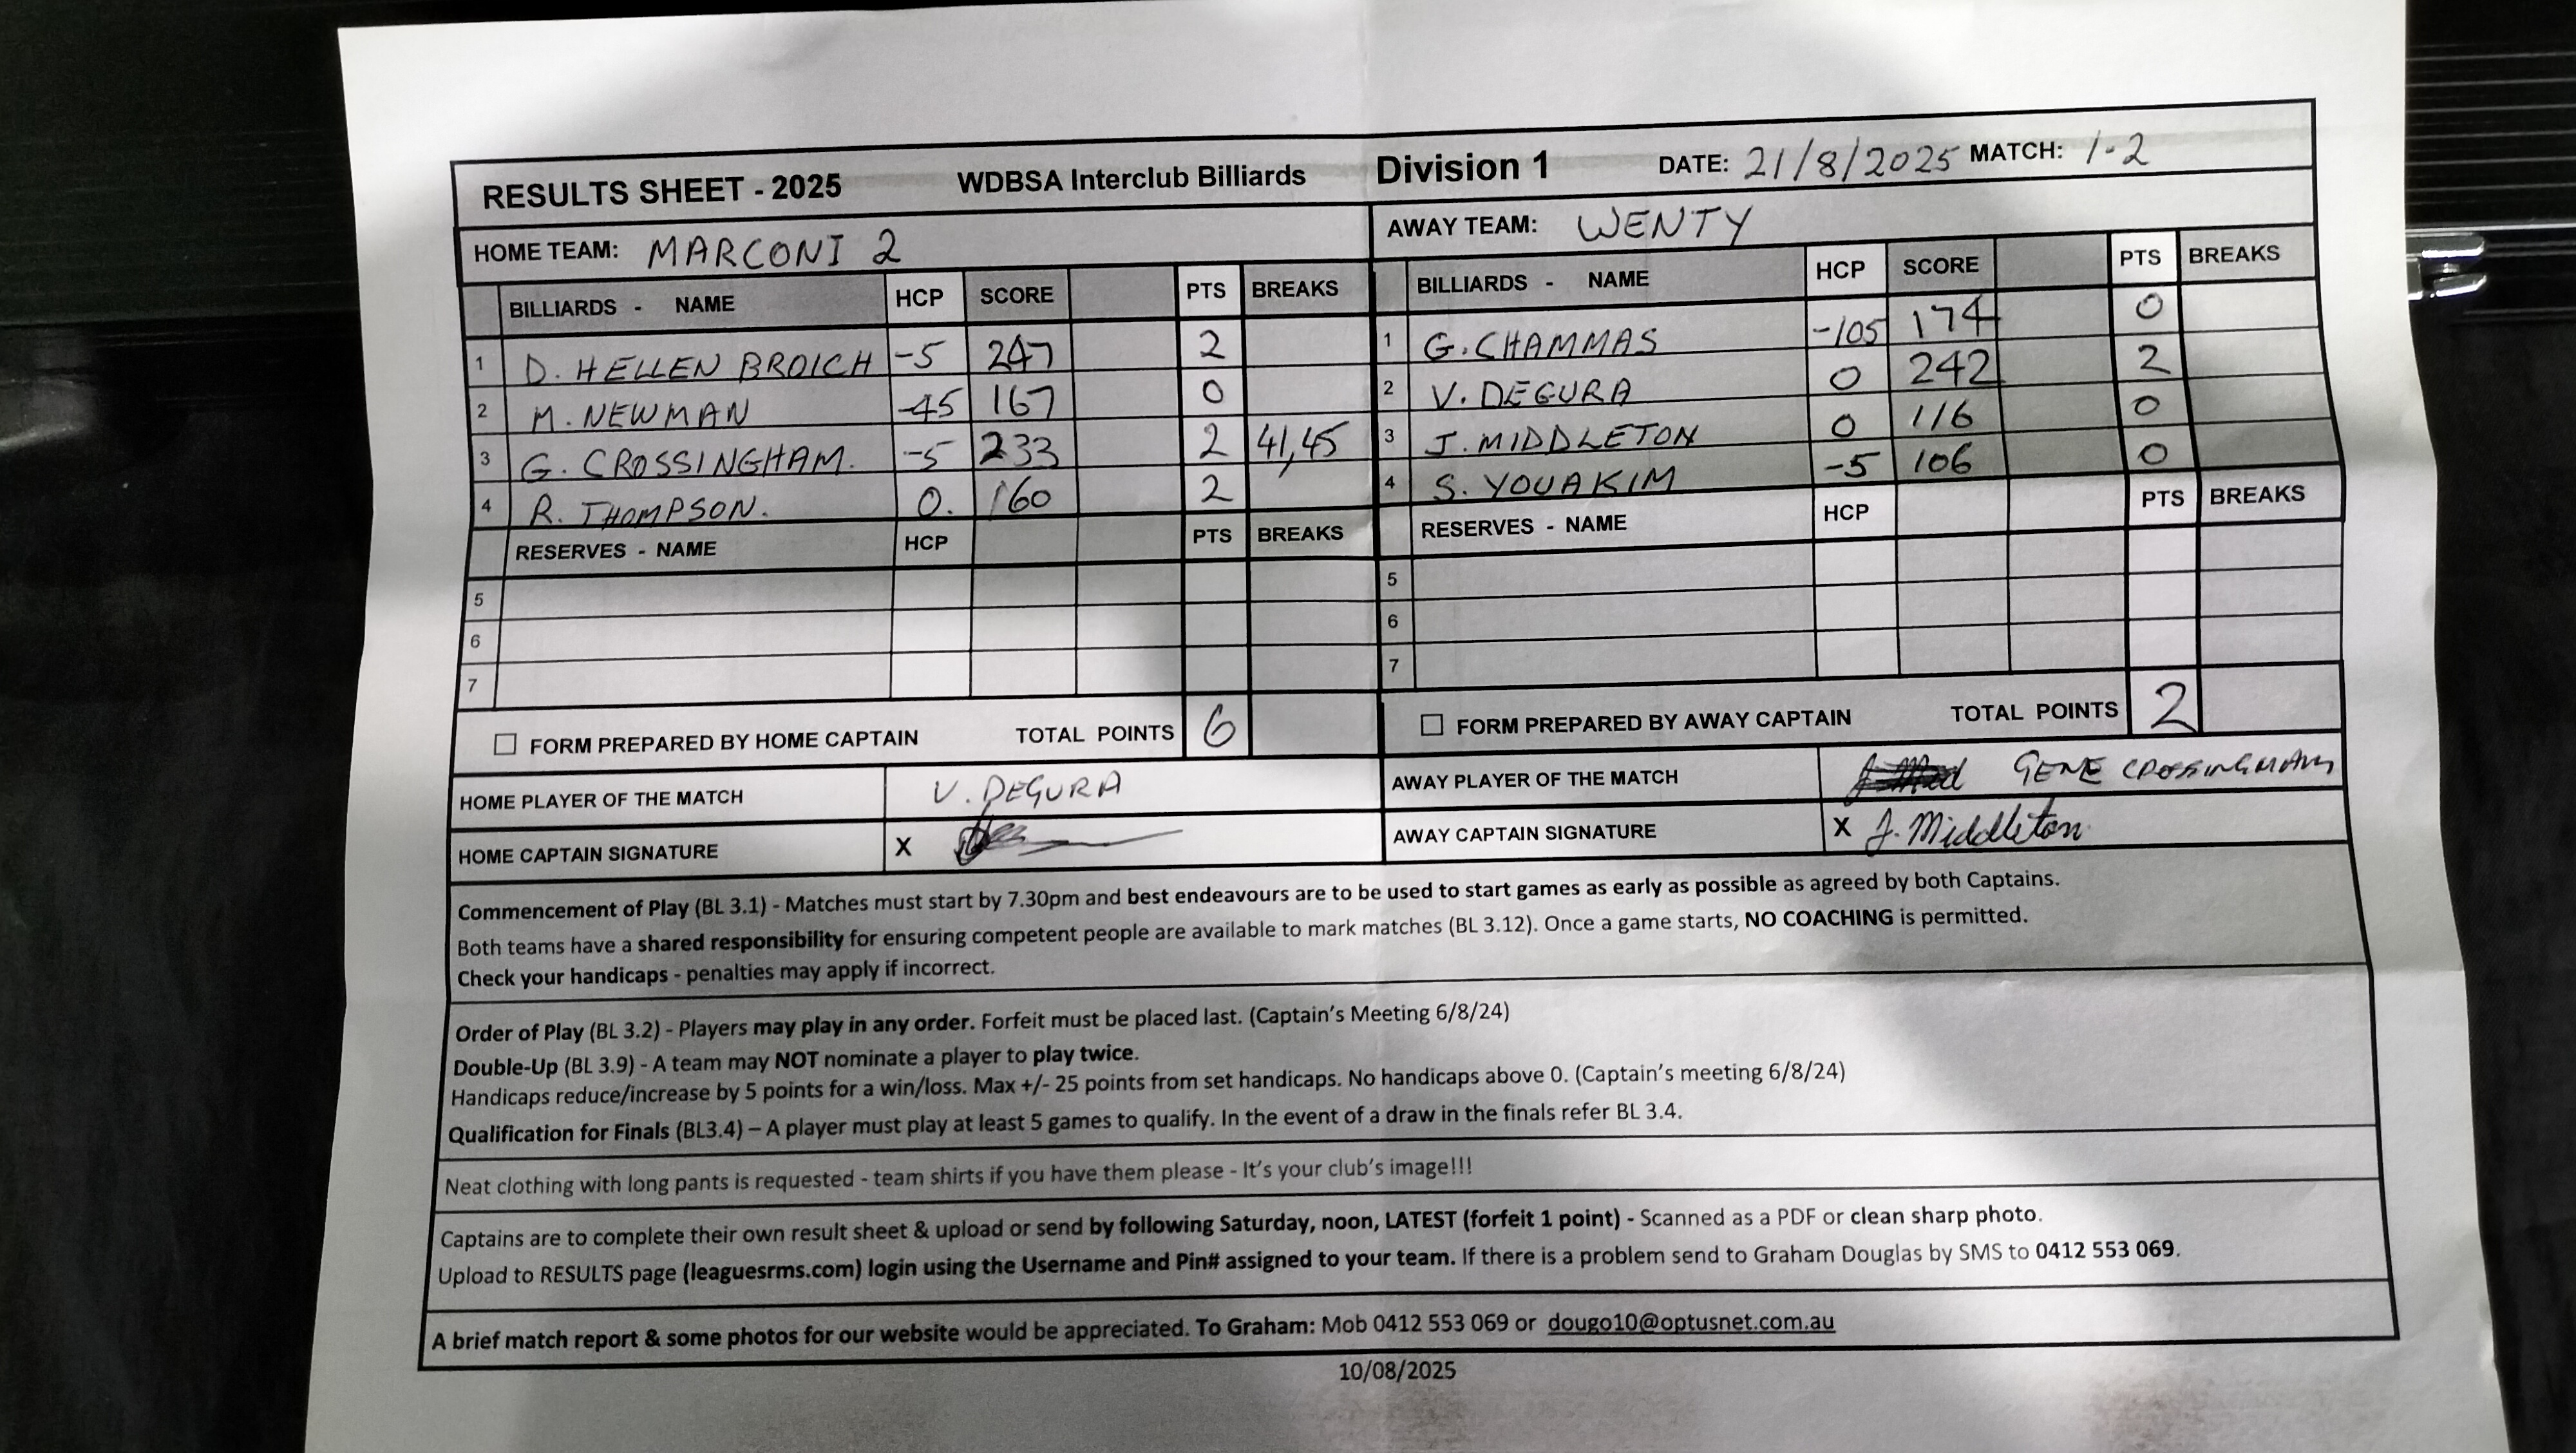 RESULTS SHEET - 2025 WDBSA Interclub Billiards Division 1 DATE: 21/8/2025 MATCH: 1-2
HOME TEAM: MARCONI 2 AWAY TEAM: WENTY
BILLIARDS - NAME HCP SCORE PTS BREAKS BILLIARDS - NAME HCP SCORE PTS BREAKS
1 D. HELLEN BROICH -5 247 2 1 G. CHAMMAS -105 174 0
2 M. NEWMAN -45 167 0 2 V. DEGURA 0 242 2
3 G. CROSSINGHAM. -5 233 2 41,45 3 J. MIDDLETON 0 116 0
4 R. THOMPSON. 0. 160 2 4 S. YOUAKIM -5 106 0
RESERVES - NAME HCP PTS BREAKS RESERVES - NAME HCP PTS BREAKS
5 5
6 6
7 7
FORM PREPARED BY HOME CAPTAIN TOTAL POINTS 6 FORM PREPARED BY AWAY CAPTAIN TOTAL POINTS 2
HOME PLAYER OF THE MATCH V. DEGURA AWAY PLAYER OF THE MATCH GENE CROSSINGHAM
HOME CAPTAIN SIGNATURE X AWAY CAPTAIN SIGNATURE X J. Middleton
Commencement of Play (BL 3.1) - Matches must start by 7.30pm and best endeavours are to be used to start games as early as possible as agreed by both Captains.
Both teams have a shared responsibility for ensuring competent people are available to mark matches (BL 3.12). Once a game starts, NO COACHING is permitted.
Check your handicaps - penalties may apply if incorrect.
Order of Play (BL 3.2) - Players may play in any order. Forfeit must be placed last. (Captain's Meeting 6/8/24)
Double-Up (BL 3.9) - A team may NOT nominate a player to play twice.
Handicaps reduce/increase by 5 points for a win/loss. Max +/- 25 points from set handicaps. No handicaps above 0. (Captain's meeting 6/8/24)
Qualification for Finals (BL3.4) – A player must play at least 5 games to qualify. In the event of a draw in the finals refer BL 3.4.
Neat clothing with long pants is requested - team shirts if you have them please - It's your club's image!!!
Captains are to complete their own result sheet & upload or send by following Saturday, noon, LATEST (forfeit 1 point) - Scanned as a PDF or clean sharp photo.
Upload to RESULTS page (leaguesrms.com) login using the Username and Pin# assigned to your team. If there is a problem send to Graham Douglas by SMS to 0412 553 069.
A brief match report & some photos for our website would be appreciated. To Graham: Mob 0412 553 069 or dougo10@optusnet.com.au
10/08/2025